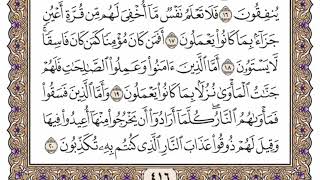 يُنفِقُونَ ١٦ فَلَا تَعْلَمُ نَفْسٌ مَّا أُخْفِيَ لَهُم مِّن قُرَّةِ أَعْيُنٍ
جَزَاءً بِمَا كَانُوا يَعْمَلُونَ ١٧ أَفَمَن كَانَ مُؤْمِنًا كَمَن كَانَ فَاسِقًا
لَّا يَسْتَوُونَ ١٨ أَمَّا الَّذِينَ ءَامَنُوا وَعَمِلُوا الصَّالِحَاتِ فَلَهُمْ
جَنَّاتُ الْمَأْوَىٰ نُزُلًا بِمَا كَانُوا يَعْمَلُونَ ١٩ وَأَمَّا الَّذِينَ فَسَقُوا
فَمَأْوَاهُمُ النَّارُ كُلَّمَا أَرَادُوا أَن يَخْرُجُوا مِنْهَا أُعِيدُوا فِيهَا
وَقِيلَ لَهُمْ ذُوقُوا عَذَابَ النَّارِ الَّذِي كُنتُم بِهِ تُكَذِّبُونَ ٢٠
٤١٦